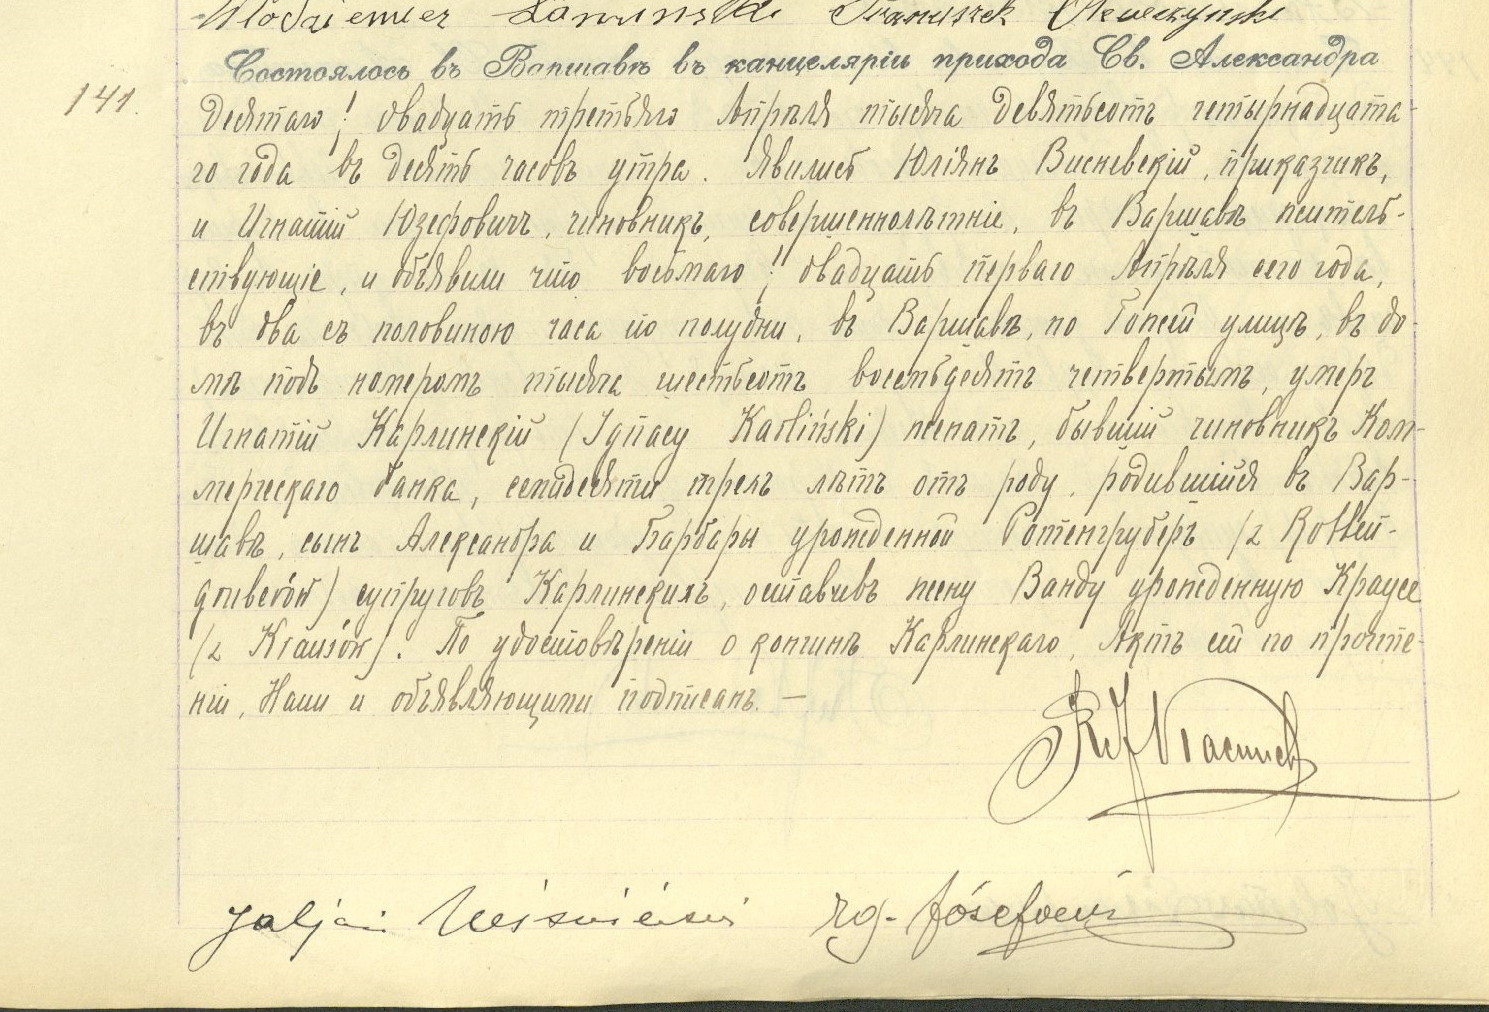 Włodzimierz Kamiński Franciszek
141.
Состоялось въ Варшавѣ въ канцеляріи прихода Св. Александра
десятаго / двадцать третьяго Апрѣля тысяча девятьсотъ четырнадцата-
го года въ десять часовъ утра. Явились Юліянъ Висневскій, приказчикъ,
и Игнатій Юзефовичъ, чиновникъ, совершеннолѣтніе, въ Варшавѣ житель-
ствующіе, и объявили что восьмаго / двадцать перваго Апрѣля сего года,
въ два съ половиною часа по полудни, въ Варшавѣ, по Гожей улицѣ, въ до-
мѣ подъ номеромъ тысяча шестьсотъ восемьдесятъ четвертымъ, умеръ
Игнатій Карлинскій (Ignacy Karliński) женатъ, бывшій чиновникъ Ком-
мерческаго банка, семидесяти трехъ лѣтъ отъ роду, родившійся въ Вар-
шавѣ, сынъ Александра и Барбары урожденной Ротенгруберъ /z Rotten-
gruberów) супруговъ Карлинскихъ, оставивъ жену Ванду урожденную Краузе
/z Krausów). По удостовѣреніи о кончинѣ Карлинскаго, Актъ сей по прочте-
ніи, Нами и объявляющими подписанъ. —
Juljan Wiśniewski Ig. Józefowicz